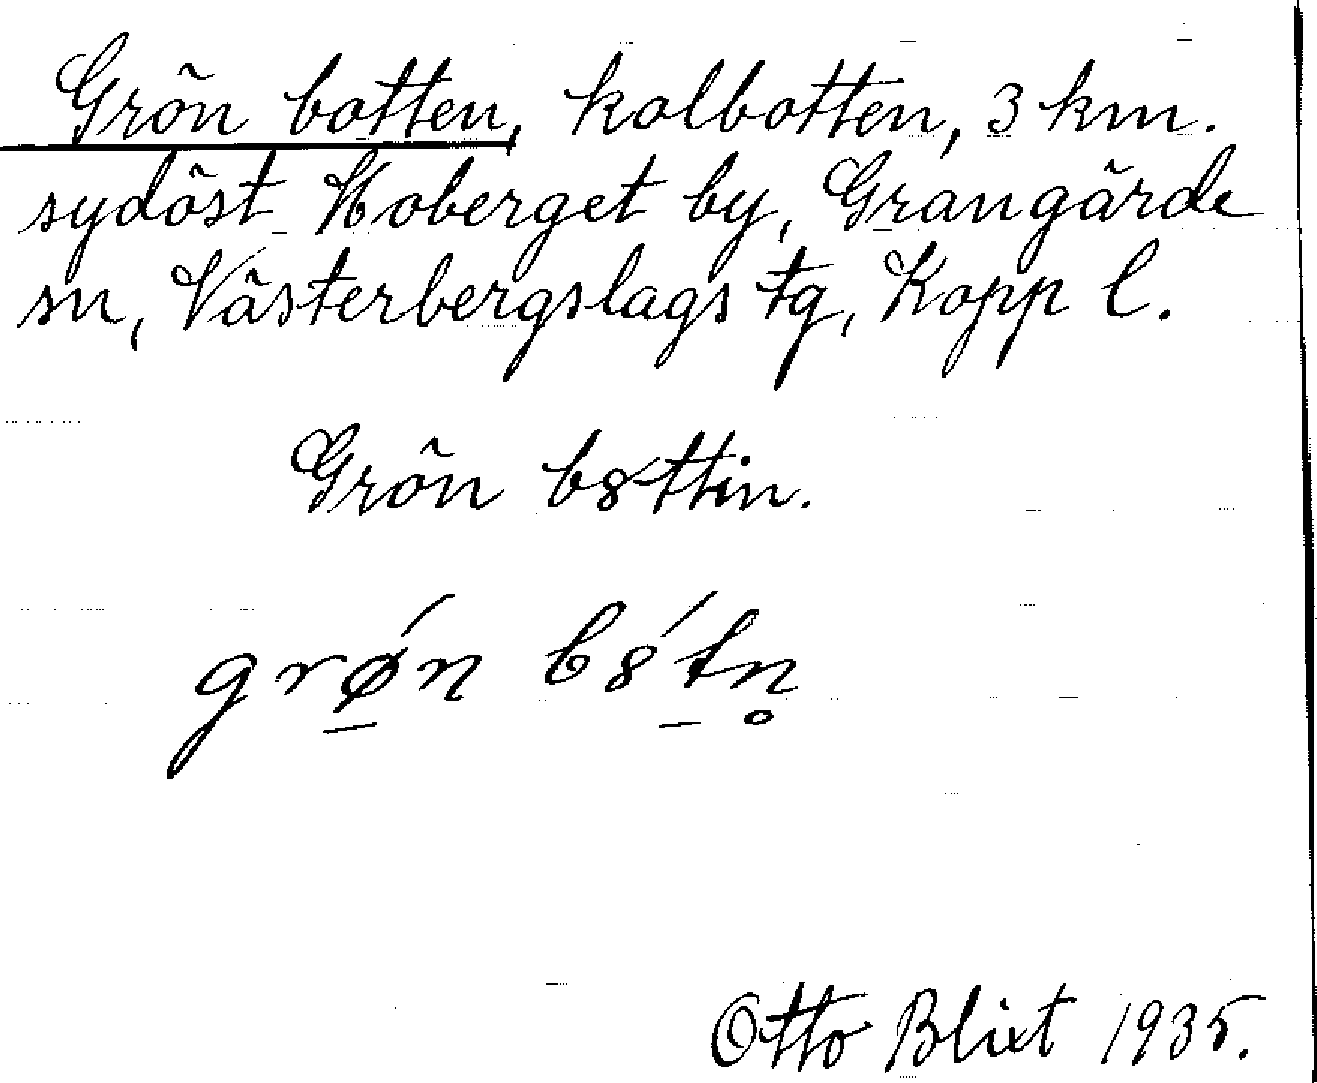 Grön botten, kolbotten, 3 km.
sydöst Hoberget by, Grangärde
sn, Västerbergslags tg, Kopp l.
Grön b8ttin.
grǿn b8́tn̥
Otto Blixt 1935.